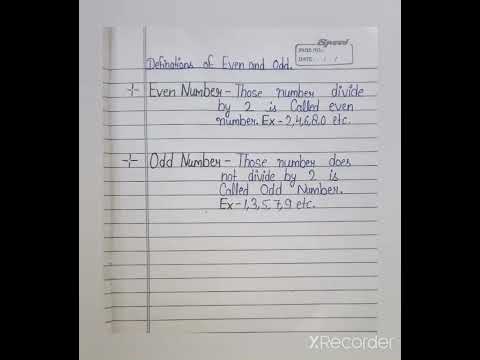 Speed
PAGE NO.:
DATE: / /
Definations of Even and Odd.
Even Number - Those number divide
by 2 is Called even
number. Ex - 2,4,6,8,0 etc.
Odd Number - Those number does
not divide by 2 is
Called Odd Number.
Ex - 1,3,5,7,9 etc.
XRecorder